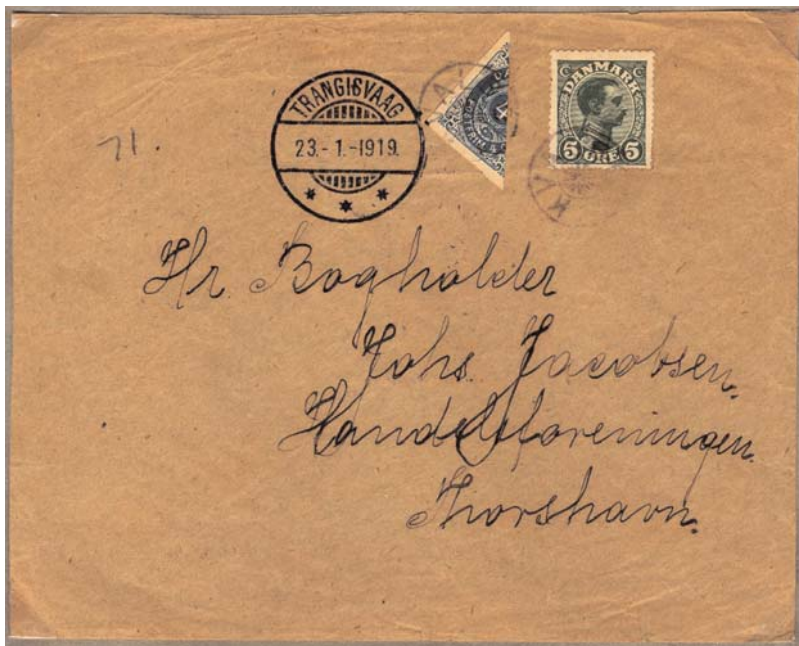 TRANGISVAAG
23.-1.-1919.
4
POSTFRIM
DANMARK
5 ØRE 5
71.
Hr. Bogholder
Johs. Jacobsen.
Handelsforeningen.
Thorshavn.